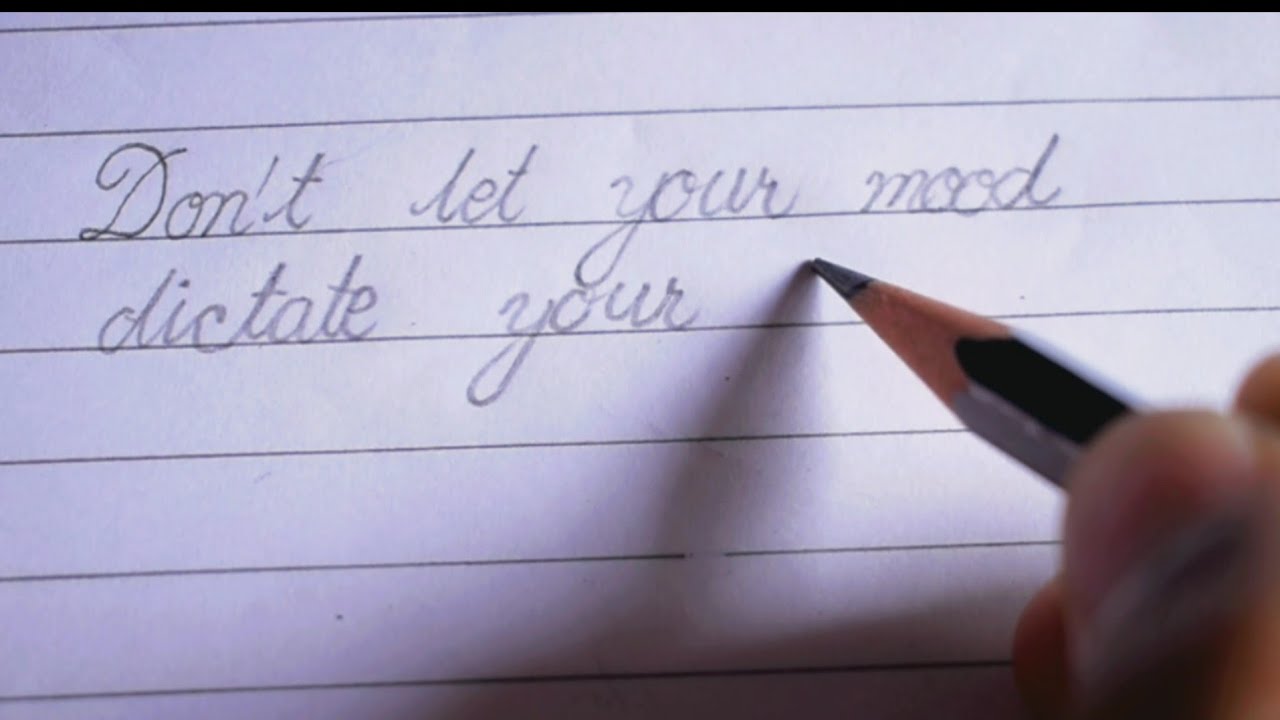 Don't let your mood
dictate your